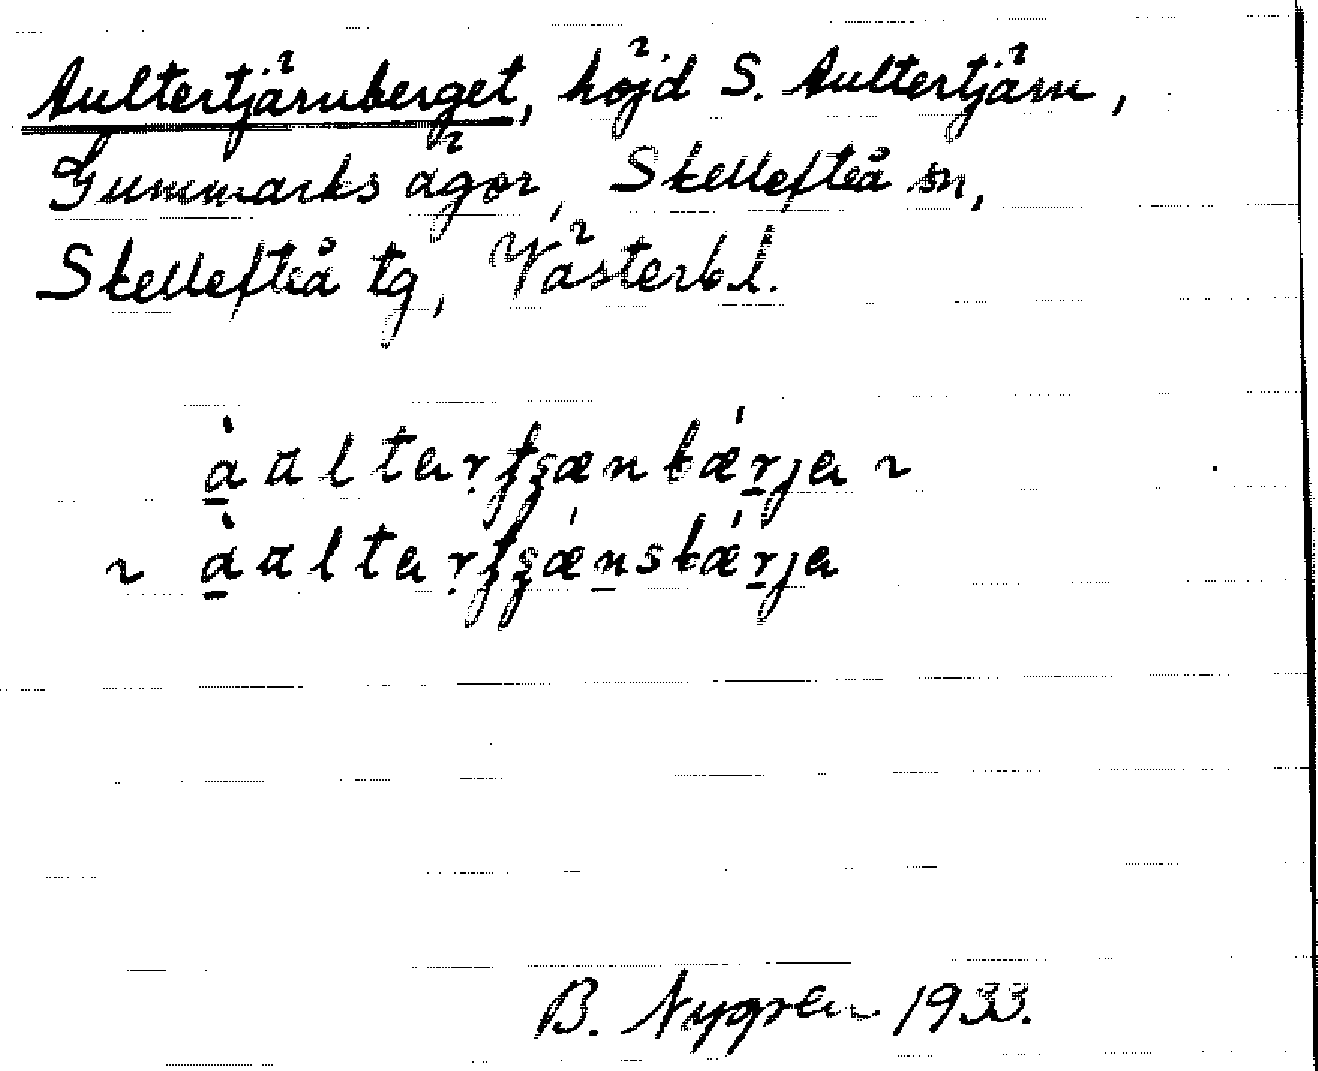 Aultertjärnberget, höjd S. Aultertjärn,
Gummarks ägor, Skellefteå sn,
Skellefteå tg, Västerb.l.
B. Nygren 1933.